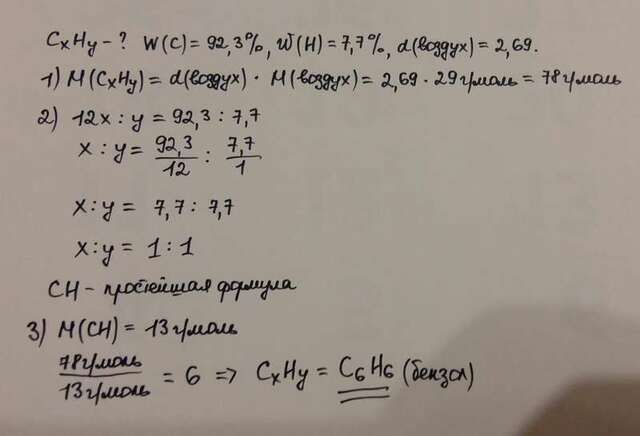 CxHy - ? W(C) = 92,3%, W(H) = 7,7%, d(воздух) = 2,69.
1) M(CxHy) = d(воздух) · M(воздух) = 2,69 · 29 г/моль = 78 г/моль
2) 12x : y = 92,3 : 7,7
x : y = 92,3/12 : 7,7/1
x : y = 7,7 : 7,7
x : y = 1 : 1
CH - простейшая формула
3) M(CH) = 13 г/моль
78 г/моль / 13 г/моль = 6 => CxHy = C6H6 (бензол)